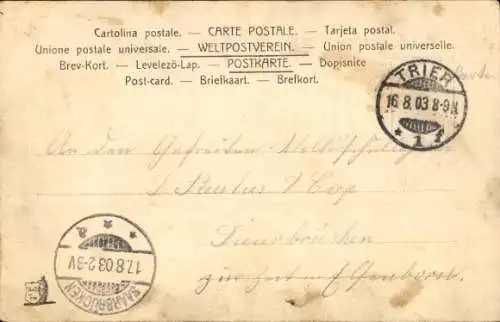 Cartolina postale. — CARTE POSTALE. — Tarjeta postal.
Unione postale universale. — WELTPOSTVEREIN. — Union postale universelle.
Brev-Kort. — Levelező-Lap. — POSTKARTE. — Dopisnice
Post-card. — Briefkaart. — Brefkort.
TRIER
16.8.03 8-9N
* 1 f *
An den Gefreiten
Paulus
Saarbrücken
zur Zeit Elsenborn.
* * a
17.8.03 2-3V
SAARBRÜCKEN